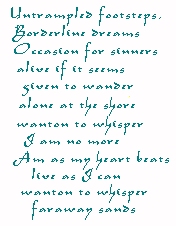 Untrampled footsteps,
Borderline dreams
Occasion for sinners
alive if it seems
given to wander
alone at the shore
wanton to whisper
I am no more
Am as my heart beats
live as I can
wanton to whisper
faraway sands